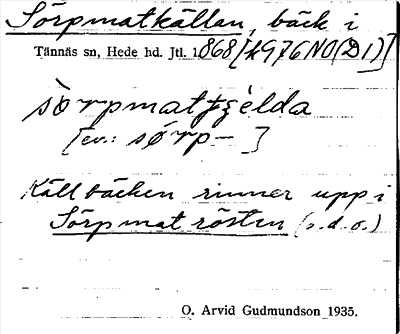 Sörpmatkällan, bäck i
Tännäs sn, Hede hd. Jtl. 1868 [4976 NO (D1)]
sòrpmatʒɛlda
[ev.: sørp– ]
Källbäcken rinner upp i
Sörpmatrösten (s.d.o.)
O. Arvid Gudmundson 1935.